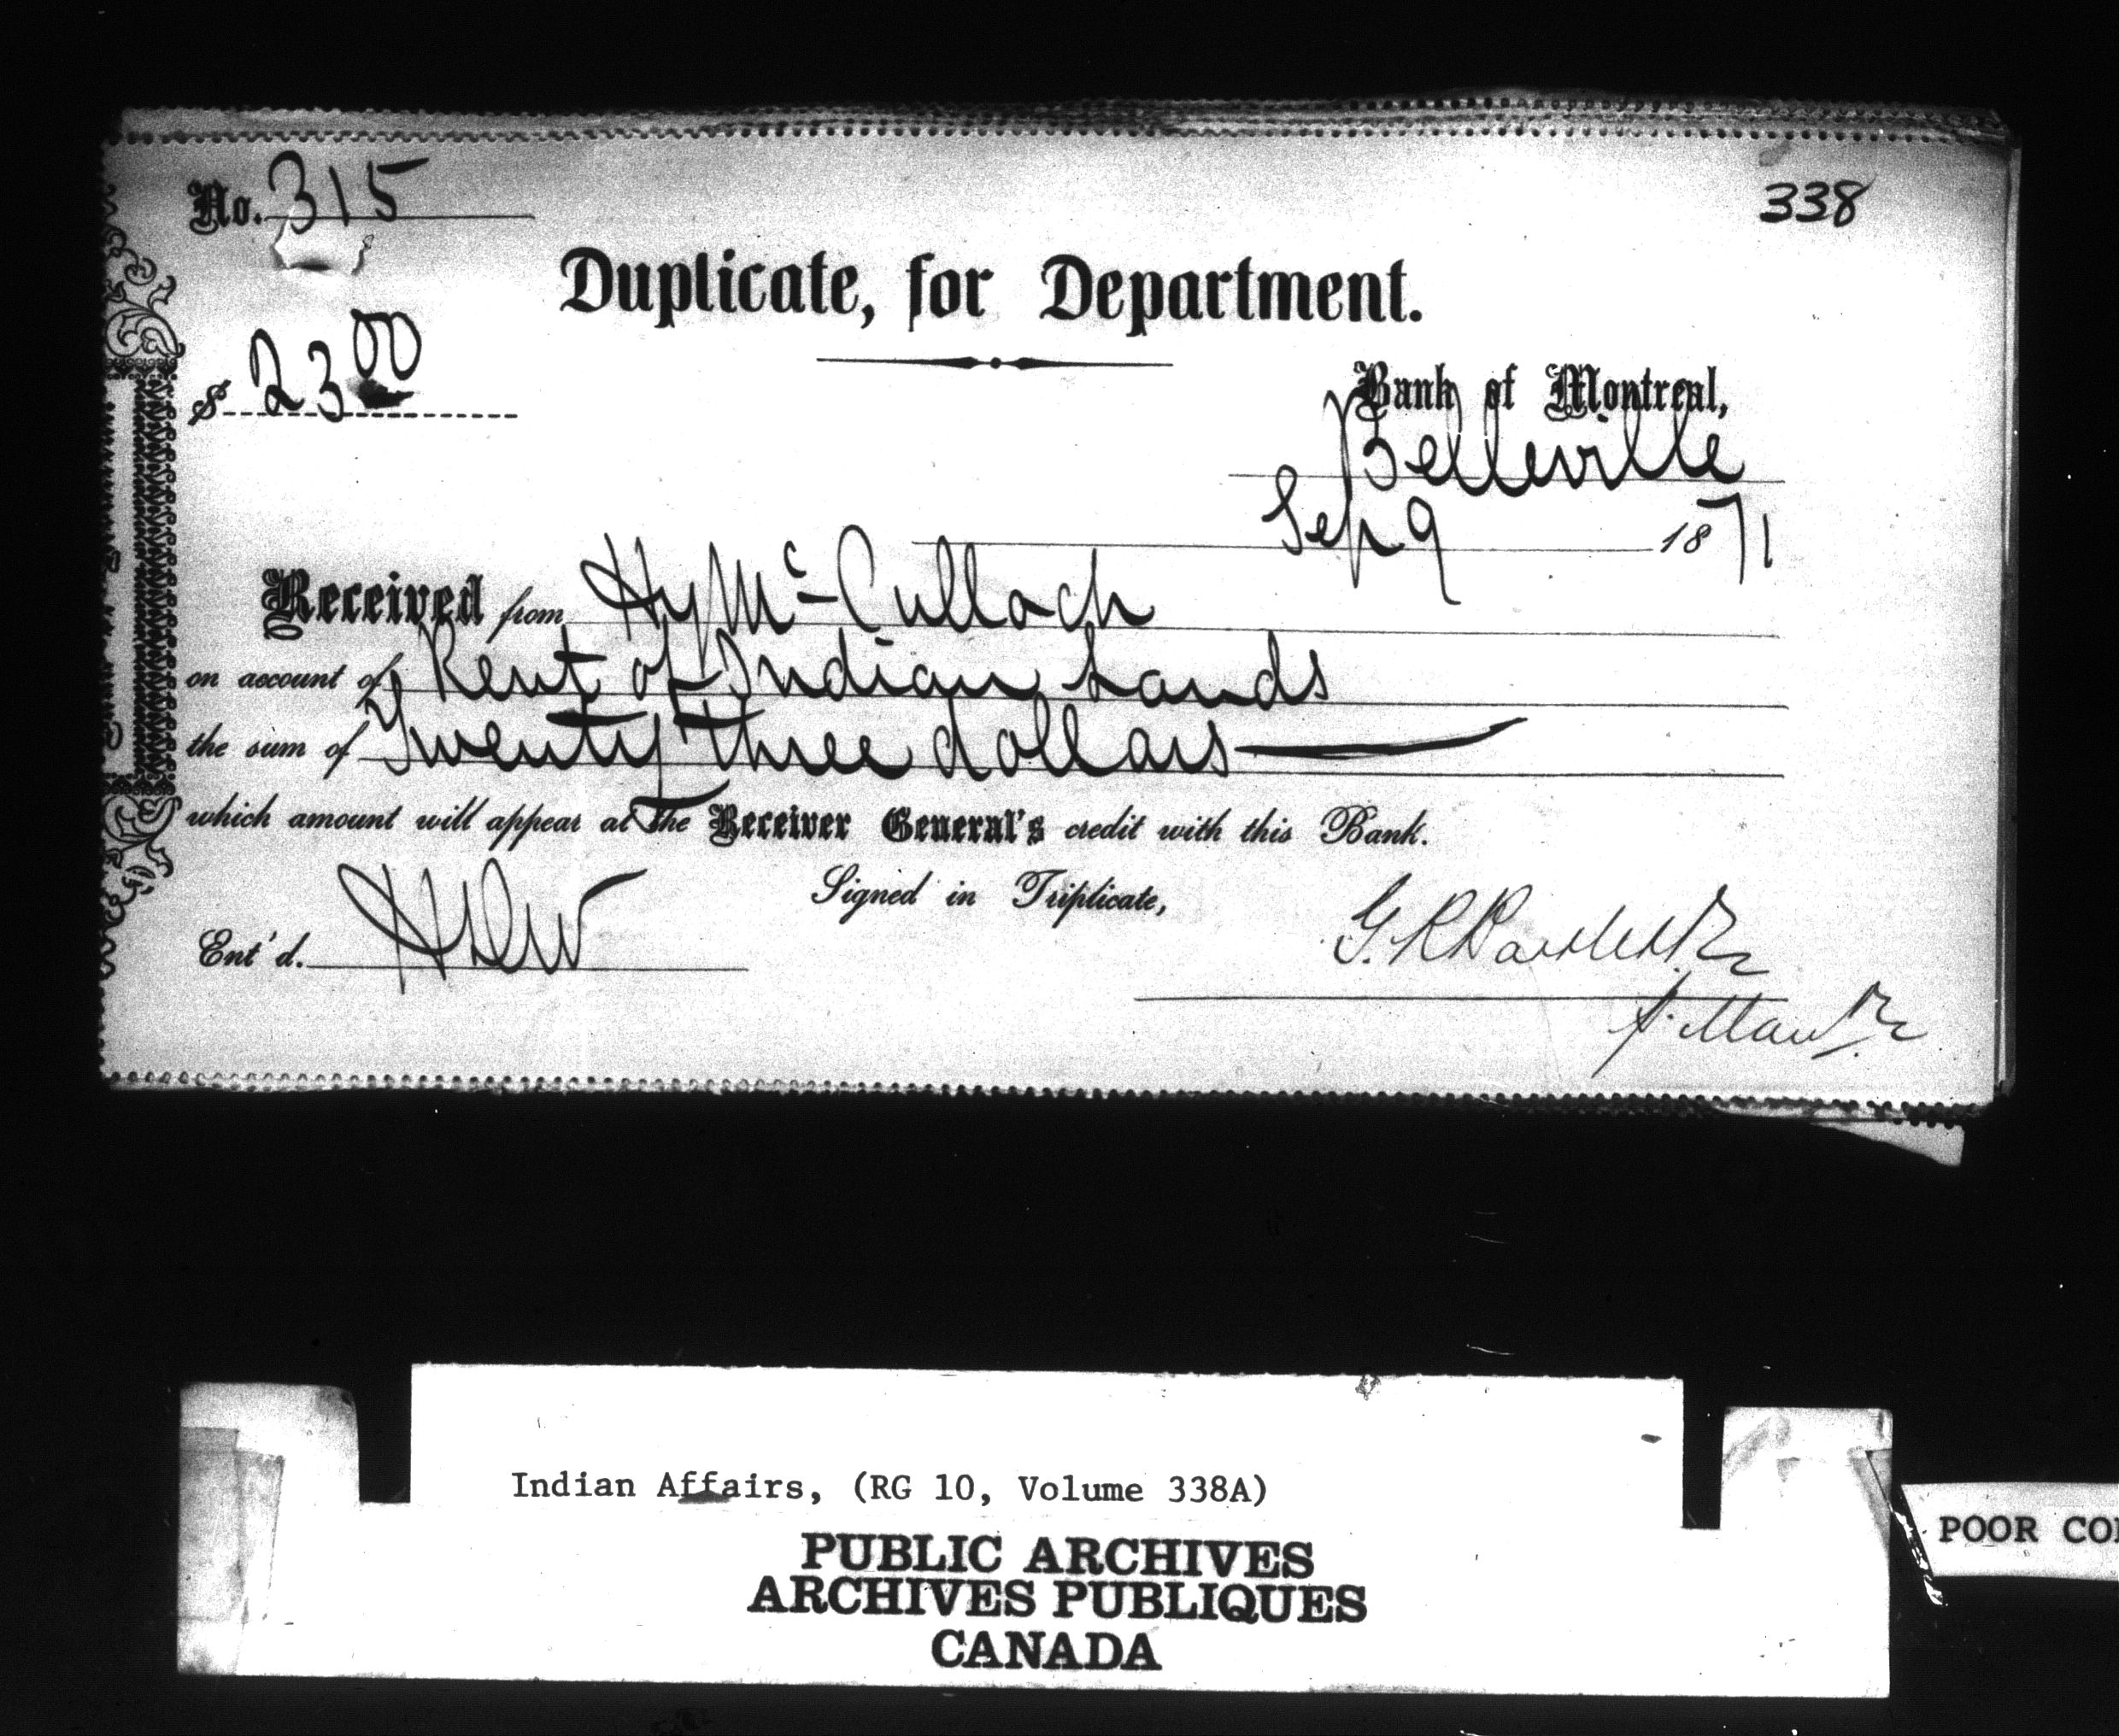 No. 315
338
Duplicate, for Department.
$ 23 00
Bank of Montreal,
Belleville
Sep 9 1871
Received from Hy Mc Culloch
on account of Rent of Indian Lands
the sum of Twenty three dollars
which amount will appear at the Receiver General's credit with this Bank.
Signed in Triplicate,
Ent'd.
G. R.
Indian Affairs, (RG 10, Volume 338A)
POOR CO
PUBLIC ARCHIVES
ARCHIVES PUBLIQUES
CANADA